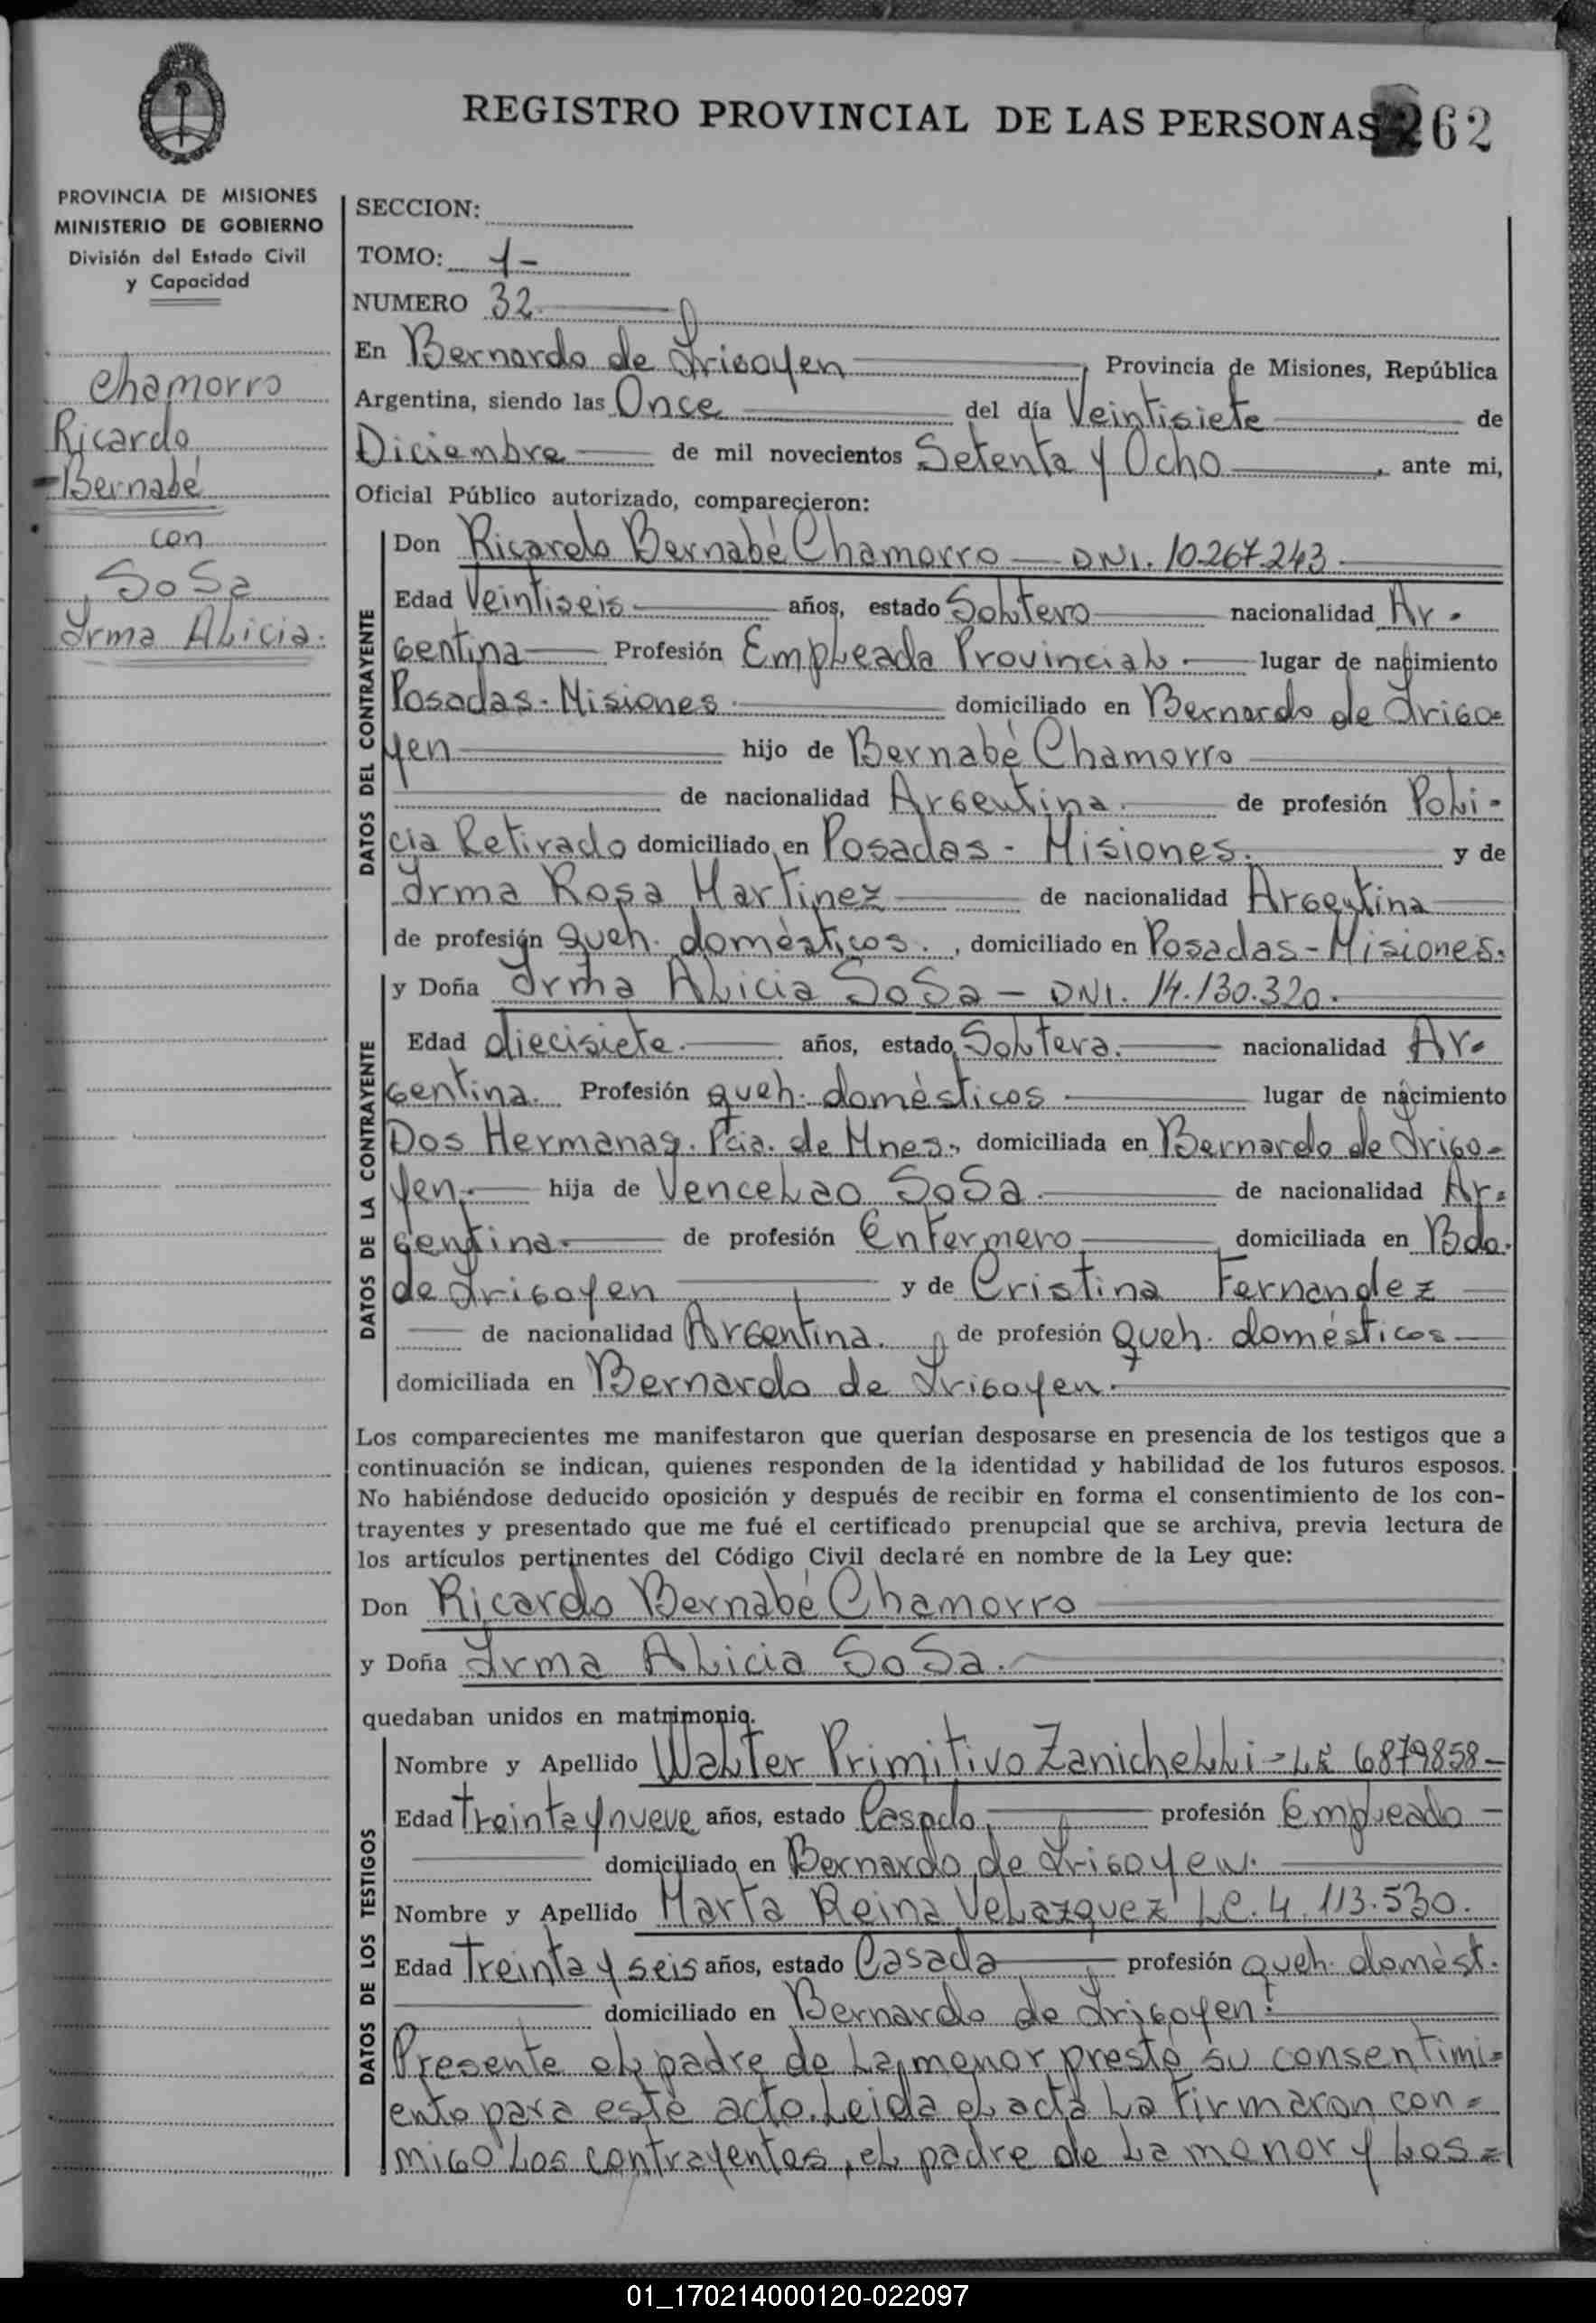 REGISTRO PROVINCIAL DE LAS PERSONAS 262
PROVINCIA DE MISIONES
MINISTERIO DE GOBIERNO
División del Estado Civil
y Capacidad
Chamorro
Ricardo
Bernabé
con
Sosa
Irma Alicia.
SECCION:
TOMO: 1-
NUMERO 32
En Bernardo de Irigoyen, Provincia de Misiones, República
Argentina, siendo las Once del día Veintisiete de
Diciembre de mil novecientos Setenta y Ocho, ante mi,
Oficial Público autorizado, comparecieron:
DATOS DEL CONTRAYENTE
Don Ricardo Bernabé Chamorro - DNI. 10.267.243
Edad Veintiseis años, estado Soltero nacionalidad Ar-
gentina Profesión Empleada Provincial. lugar de nacimiento
Posadas - Misiones domiciliado en Bernardo de Irigo=
yen hijo de Bernabé Chamorro
de nacionalidad Argentina. de profesión Poli-
cia Retirado domiciliado en Posadas - Misiones. y de
Irma Rosa Martinez de nacionalidad Argentina
de profesión queh. domésticos., domiciliado en Posadas - Misiones.
DATOS DE LA CONTRAYENTE
y Doña Irma Alicia Sosa - DNI. 14.130.320.
Edad diecisiete. años, estado Soltera. nacionalidad Ar=
gentina. Profesión queh. domésticos lugar de nacimiento
Dos Hermanas. Pcia. de Mnes., domiciliada en Bernardo de Irigo=
yen. hija de Vencelao Sosa. de nacionalidad Ar=
gentina. de profesión Enfermero, domiciliada en Bdo.
de Irigoyen y de Cristina Fernandez
de nacionalidad Argentina. de profesión queh. domésticos
domiciliada en Bernardo de Irigoyen.
Los comparecientes me manifestaron que querían desposarse en presencia de los testigos que a
continuación se indican, quienes responden de la identidad y habilidad de los futuros esposos.
No habiéndose deducido oposición y después de recibir en forma el consentimiento de los con-
trayentes y presentado que me fué el certificado prenupcial que se archiva, previa lectura de
los artículos pertinentes del Código Civil declaré en nombre de la Ley que:
Don Ricardo Bernabé Chamorro
y Doña Irma Alicia Sosa.
quedaban unidos en matrimonio.
DATOS DE LOS TESTIGOS
Nombre y Apellido Walter Primitivo Zanichelli - LE 6879858-
Edad treinta y nueve años, estado Casado, profesión Empleado -
domiciliado en Bernardo de Irigoyen.
Nombre y Apellido Marta Reina Velazquez LC. 4.113.530.
Edad treinta y seis años, estado Casada profesión queh. domést.
domiciliado en Bernardo de Irigoyen.
Presente el padre de la menor prestó su consentimi=
ento para este acto. Leida el acta la firmaron con=
migo los contrayentes, el padre de la menor y los=
01_170214000120-022097